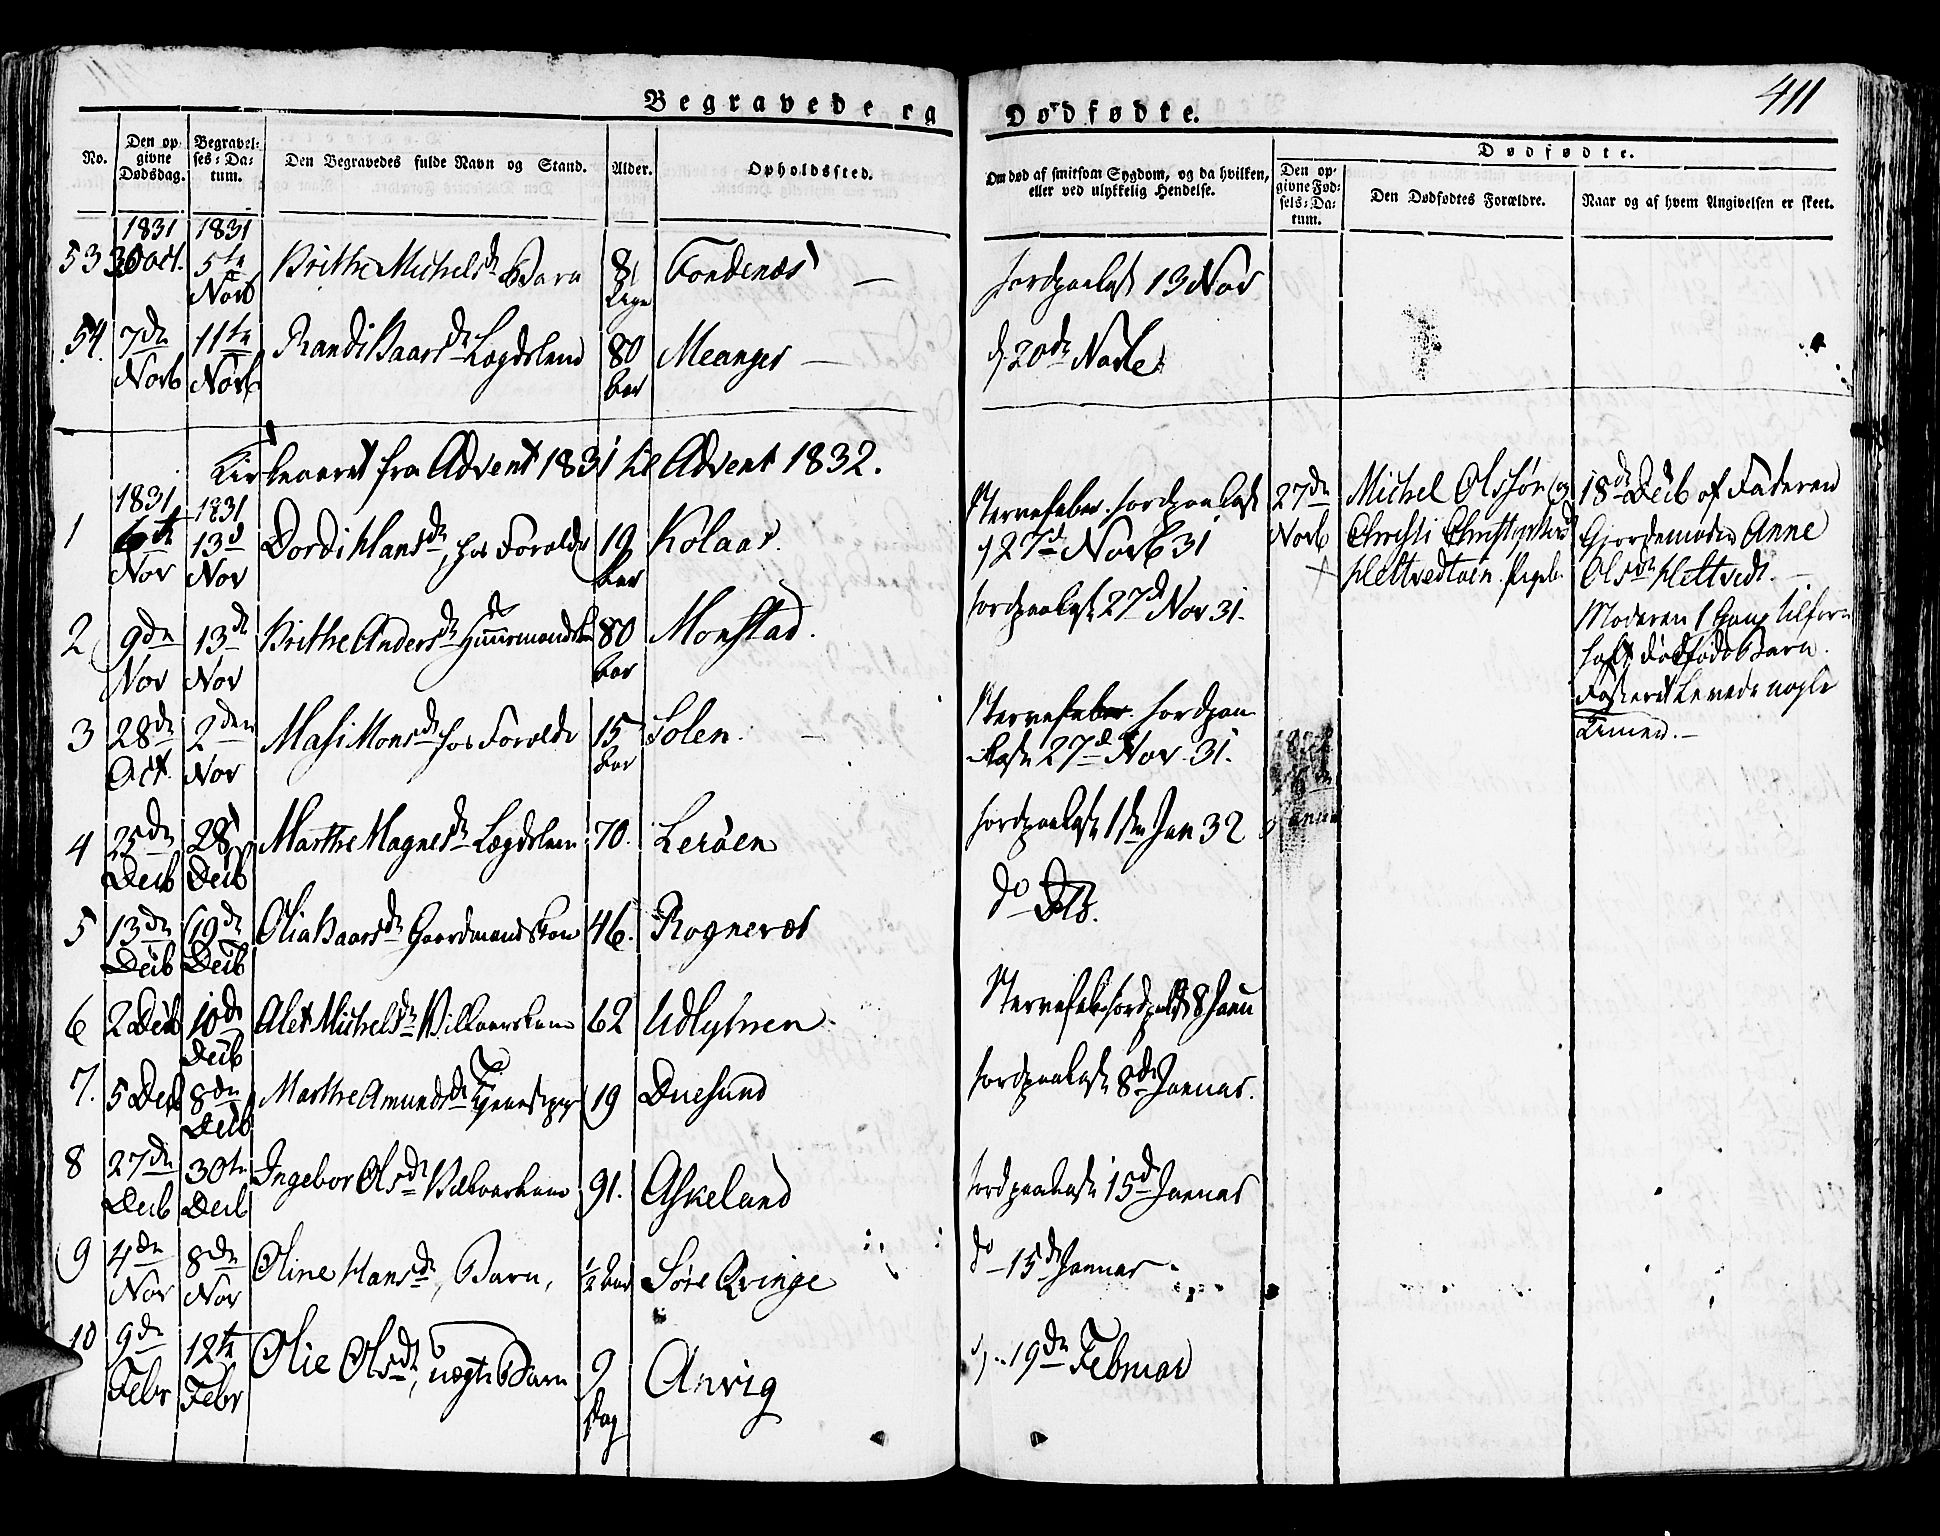 411
Begravede og Dødfødte.
No.
Den opgivne Dødsdag.
Begravelses-Datum.
Den Begravedes fulde Navn og Stand.
Alder.
Opholdssted.
Om død af smitsom Sygdom, og da hvilken, eller ved ulykkelig Hendelse.
Dødfødte.
Den opgivne Fødsels-Datum.
Den Dødfødtes Forældre.
Naar og af hvem Angivelsen er skeet.
1831 1831
53 30 Oct. 5te Novb Brithe Michelsdr Barn 8 Fondenæs Jordpaakast 13 Nov
54. 7de Novb 11te Novb Randi Baarsdr Lægdslem 80 Aar Meanger 20de Novbe
Kirkeaaret fra Advent 1831 til Advent 1832.
1831 1831
1 6te Nov 13d Nov Dordi Hansdr, hos Foreldr 19 Aar Kolaas. Nervefeber. Jordpaakast 27d Novb 31
27de Novb Michel Olssøn og Christi
Hettvedtøen
18de Decb af Faderen
Gjordemoder Anne
Olsdr Hettvedt.
Moderen 1 Gang tilforn
havt dødfødt Barn.
Fosteret levede nogle
Timer.
2 9de Nov 13de Nov Brithe Andersdr Huusmandsk 80 Aar Monstad. Jordpaakast 27d Nov 31.
3 28de Oct. 2den Nov Masi Monsdr hos Foreldr 15 Aar Solen. Nervefeber. Jordpaakast 27d Nov. 31.
4 25de Decb 28 Decb Marthe Magnesdr Lægdslem 70. Lerøen Jordpaakast 1ste Jan 32
5 13de Decb 19de Decb Olia Baarsdr Gaardmandskone 46. Rogneræt do
6 2 Decb 10de Decb Alet Michelsdr Vilkaarskone 62 Udlysnen. Nervefeb. Jordp 8 Janu
7. 5 Decb 8de Decb Marthe Amundsdr Tjenestepige 19 Duesund Jordpaakast 8de Januar.
8 27de Decb 30te Decb Ingebor Olsdr Vilkaarskone 91. Askeland Jordpaakast 15d Januar
9 4de Nov 8de Nov Oline Hansdr, Barn, ½ Aar Søre Qvinge do 15de Januar
10 9de Febr 12te Febr Olie Olsdr, uægte Barn 9 Dag Anvig 19de Februar